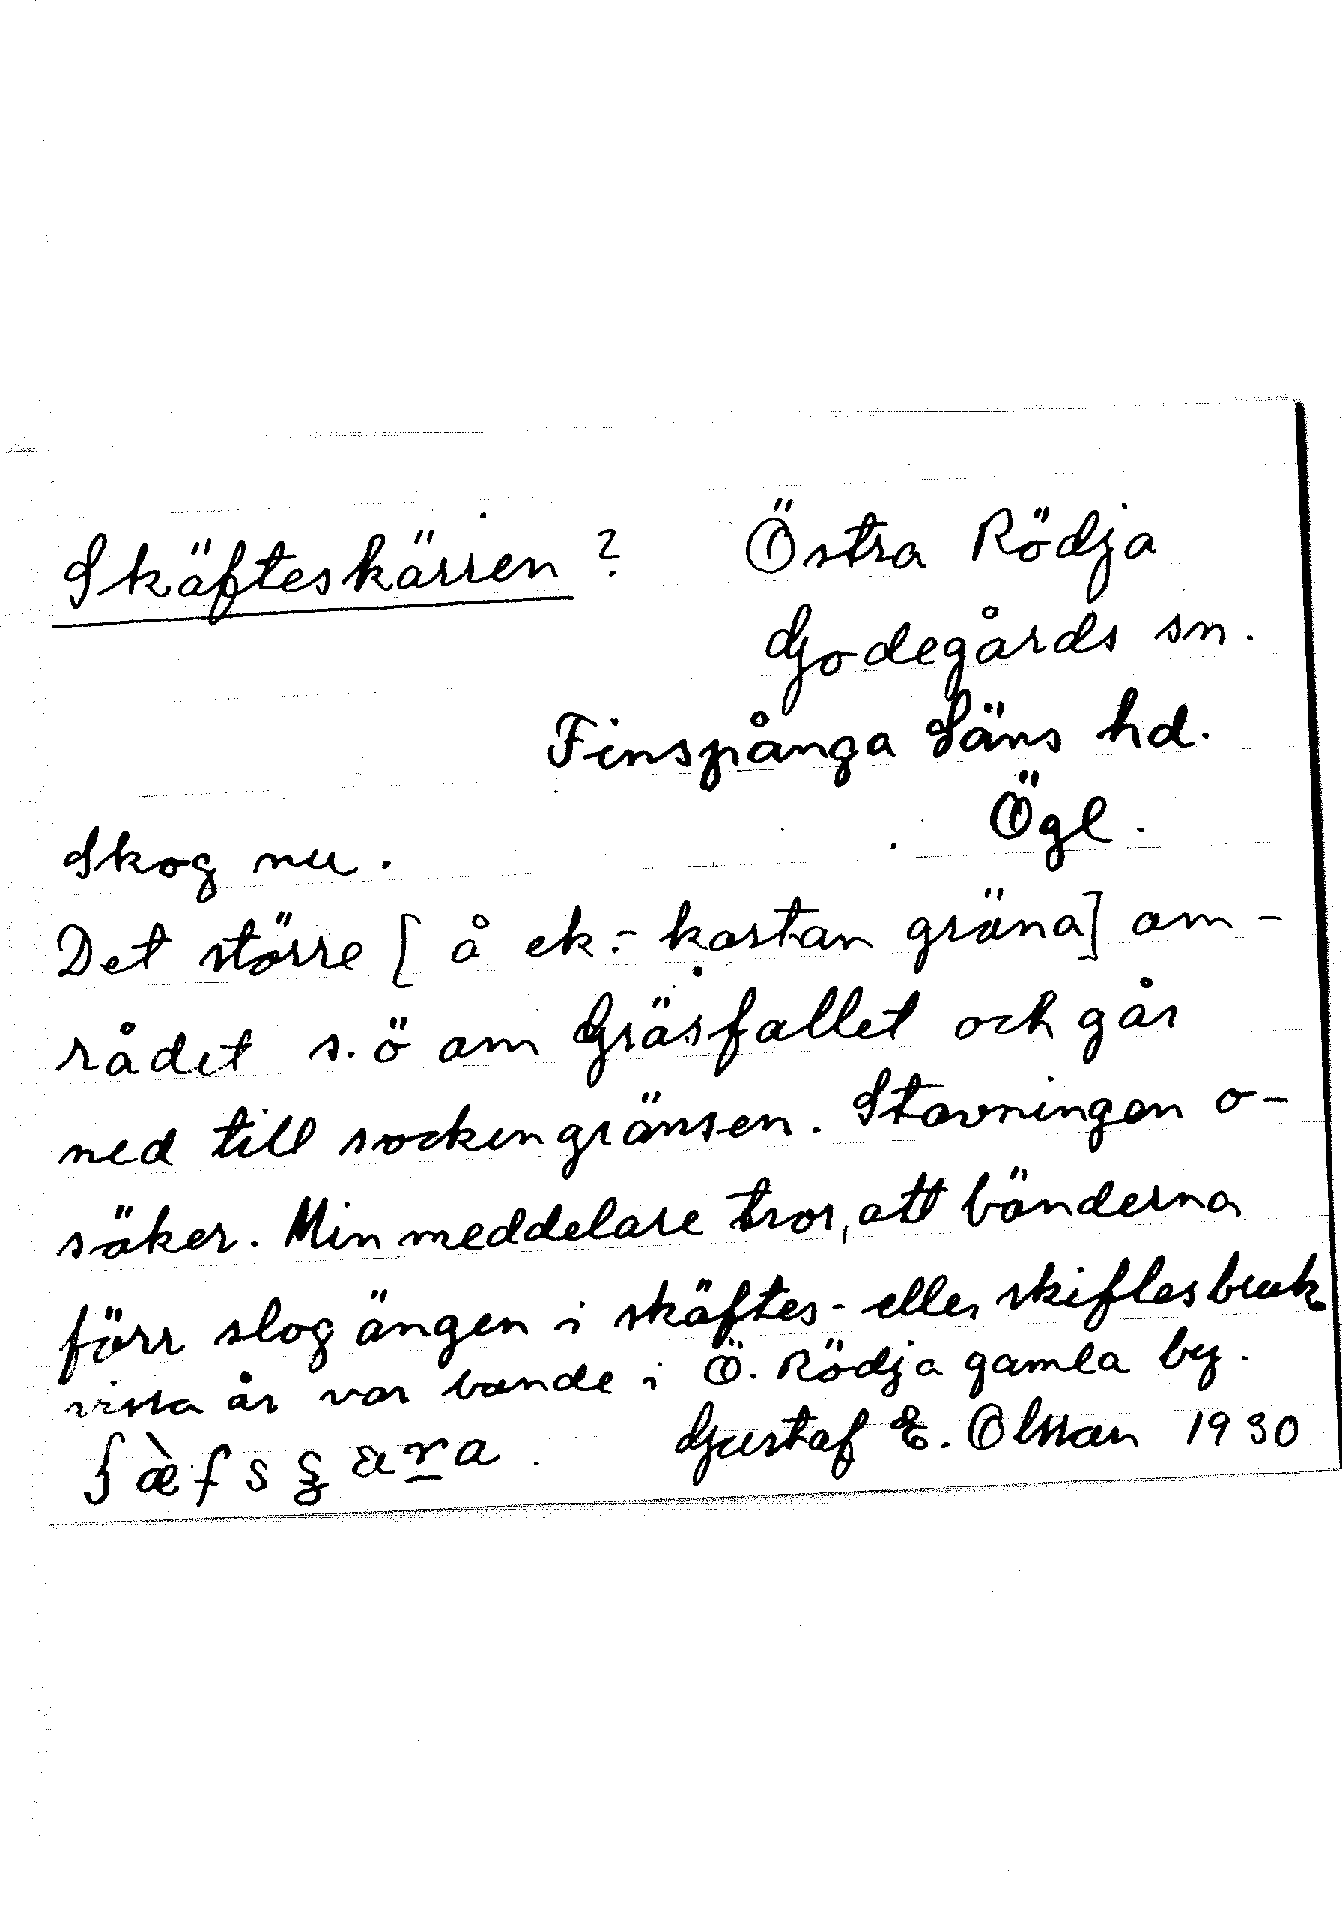 Skäfteskärren ? Östra Rödja
Godegårds sn.
Finspånga Läns hd.
Ögl.
Skog nu.
Det större [ å ek.- kartan gröna] om-
rådet s.ö om Gräsfallet och går
ned till sockengränsen. Stavningen o-
säker. Min meddelare tror, att bönderna
förr slog ängen i skäftes- eller skiftesbruk
vissa år var bonde i Ö. Rödja gamla by.
Gustaf E. Olsson 1930